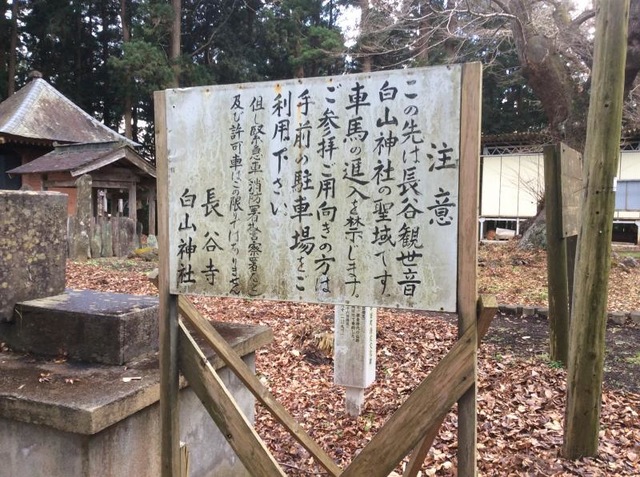 注意
この先は長谷観世音
白山神社の聖域です
車馬の進入を禁じます。
ご参拝ご用向きの方は
手前の駐車場をご
利用下さい
但し緊急車(消防署、警察署など)
及び許可車はこの限りではありません
長谷寺
白山神社